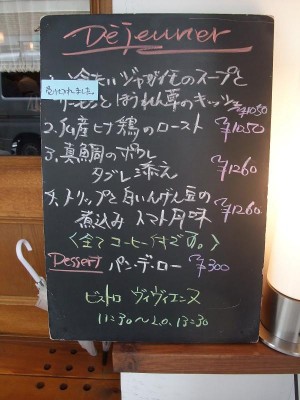 Déjeuner
売り切れました。
1. 冷たいジャガイモのスープと
サーモンとほうれん草のキッシュ ¥1050
2. 産ヒナ鶏のロースト ¥1050
3. 真鯛のポワレ
タブレ添え ¥1260
4. トリップと白いんげん豆の
煮込み トマト風味 ¥1260
〈全てコーヒー付です。〉
Dessert パン・デ・ロー ¥300
ビストロ ヴィヴィエンヌ
11:30〜L.O. 13:30